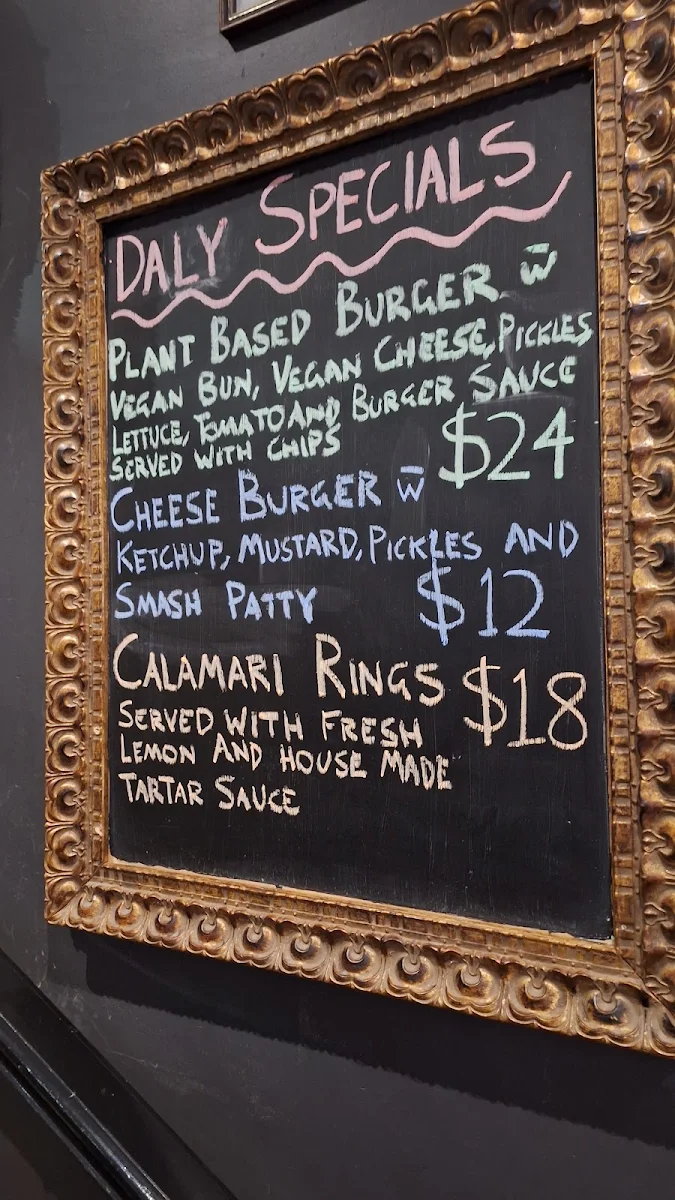 DALY SPECIALS
PLANT BASED BURGER w̅
VEGAN BUN, VEGAN CHEESE, PICKLES
LETTUCE, TOMATO AND BURGER SAUCE
SERVED WITH CHIPS $24
CHEESE BURGER w̅
KETCHUP, MUSTARD, PICKLES AND
SMASH PATTY $12
CALAMARI RINGS $18
SERVED WITH FRESH
LEMON AND HOUSE MADE
TARTAR SAUCE